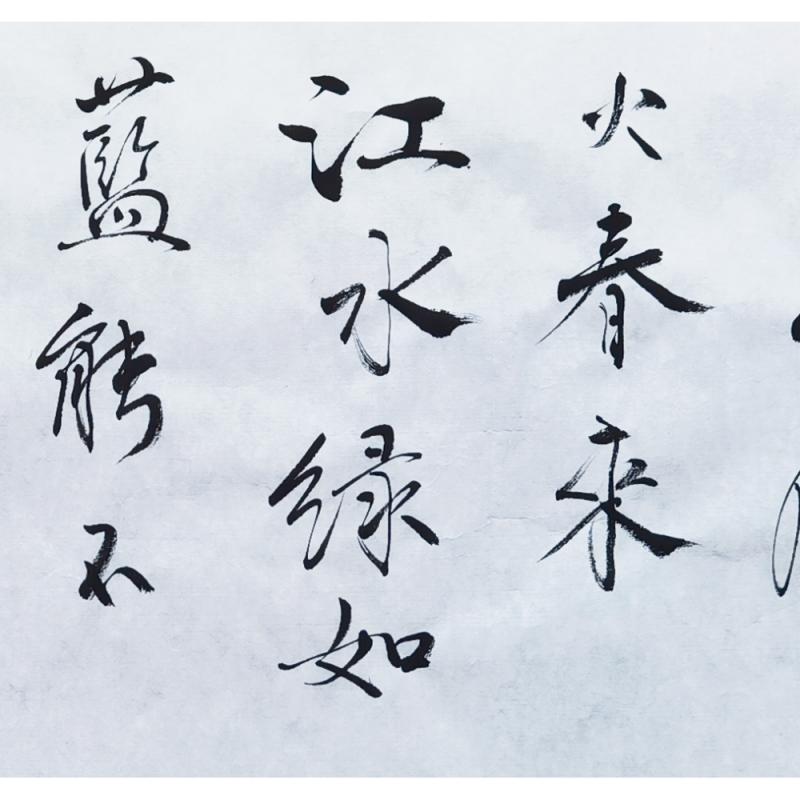 火春來
江水绿如
藍能不